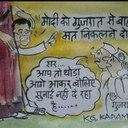 मोदी को गुजरात से बा
मत निकलने दो
सर...
आप तो थोडा
आगे आकर बोलिए
सुनाई नहीं दे रहा
है.....
गुजरा
K.G. KADAM